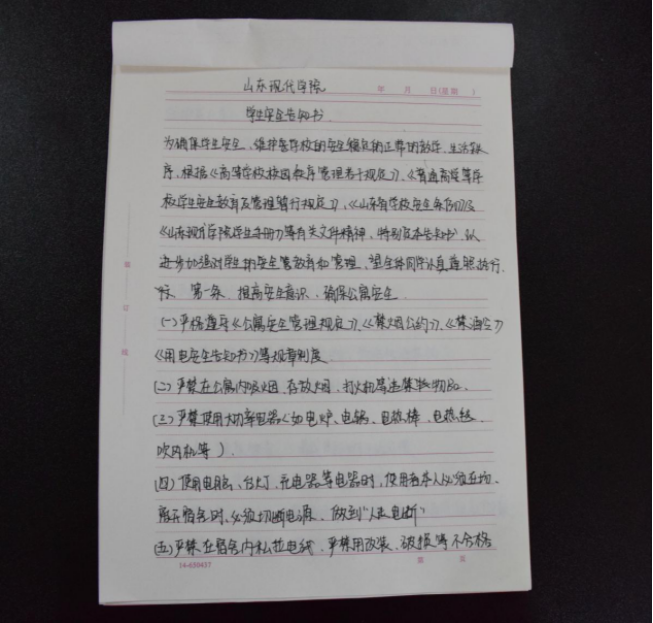 山东现代学院
年 月 日(星期 )
学生安全告知书
为确保学生安全,维护高学校的安全稳定的正常的教学、生活秩
序,根据《高等学校校园秩序管理若干规定》、《普通高等学
校学生安全教育及管理暂行规定》、《山东省学校安全条例》及
《山东现代学院学生手册》等有关文件精神,特制定本告知书,以
进步加强对学生的安全教育和管理,望全体同学认真遵照执行.
第一条、提高安全意识、确保公寓安全.
(一)严格遵守《公寓安全管理规定》、《禁烟公约》、《禁酒令》
《用电安全告知书》等规章制度
(二)严禁在公寓内吸烟、存放烟、打火机等违禁物品.
(三)严禁使用大功率电器(如电炉、电锅、电热棒、电热毯、
吹风机等).
(四)使用电脑、台灯、充电器等电器时,使用者本人必须在场.
离开宿舍时、必须切断电源、做到"人走电断"
(五)严禁在宿舍内私拉电线、严禁用改装、破损等不合格
装 订 线
14-659437
第 页